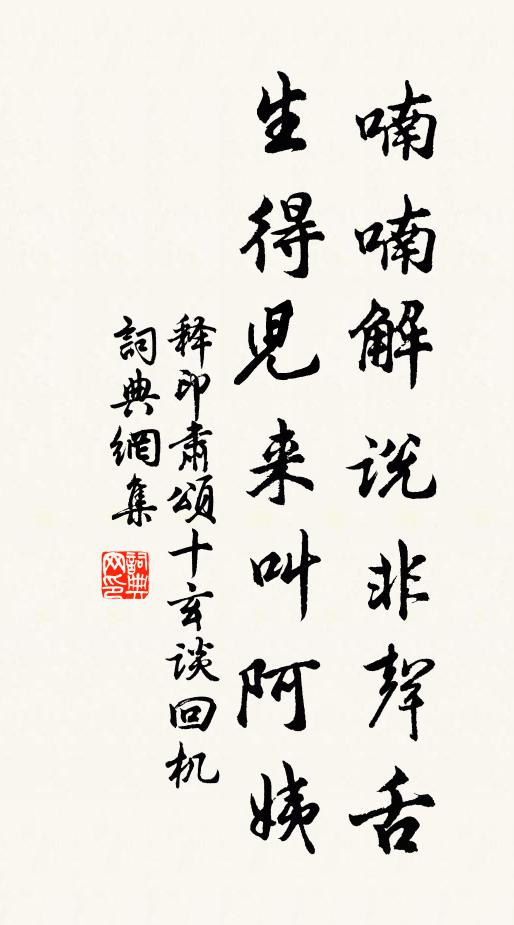 喃喃解说非聲舌
生得児来叫阿姨
释印肅頌十玄谈回机
詞典網集
詞典网印